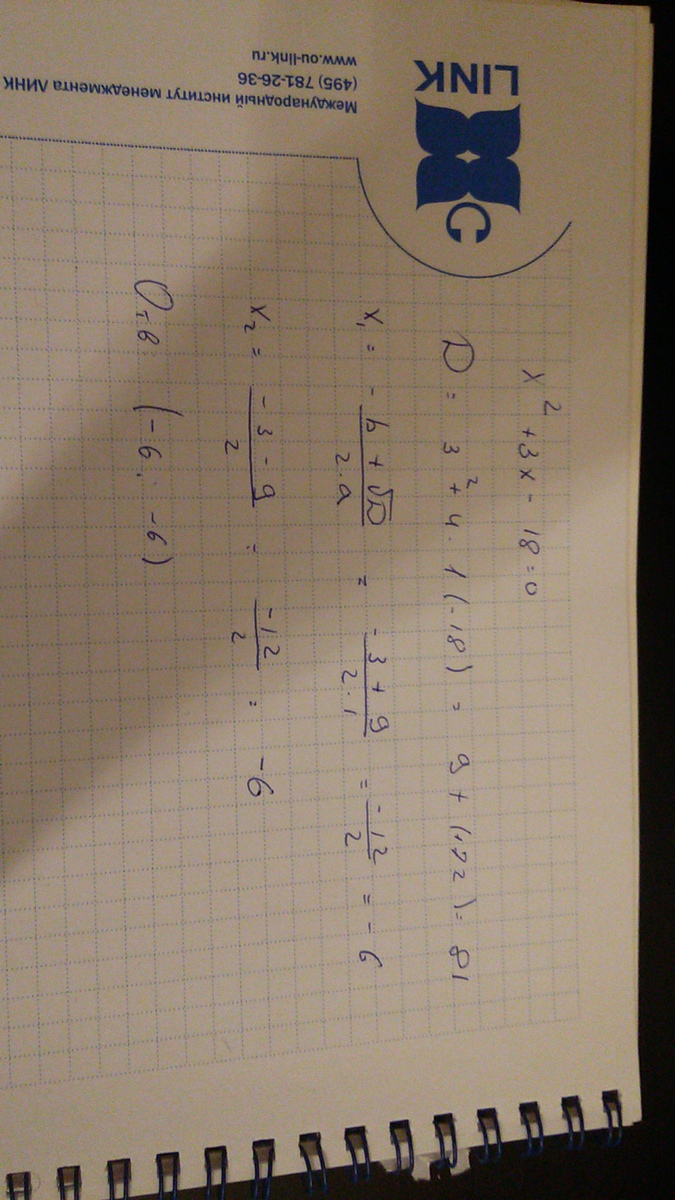 LINK
Международный институт менеджмента ЛИНК
(495) 781-26-36
www.ou-link.ru
x² + 3x - 18 = 0
D = 3² + 4 · 1 (-18) = 9 + (-72) = 81
x₁ = - b + √D / 2·a = -3 + 9 / 2·1 = -12 / 2 = -6
x₂ = -3 - 9 / 2 = -12 / 2 = -6
Отв (-6; -6)